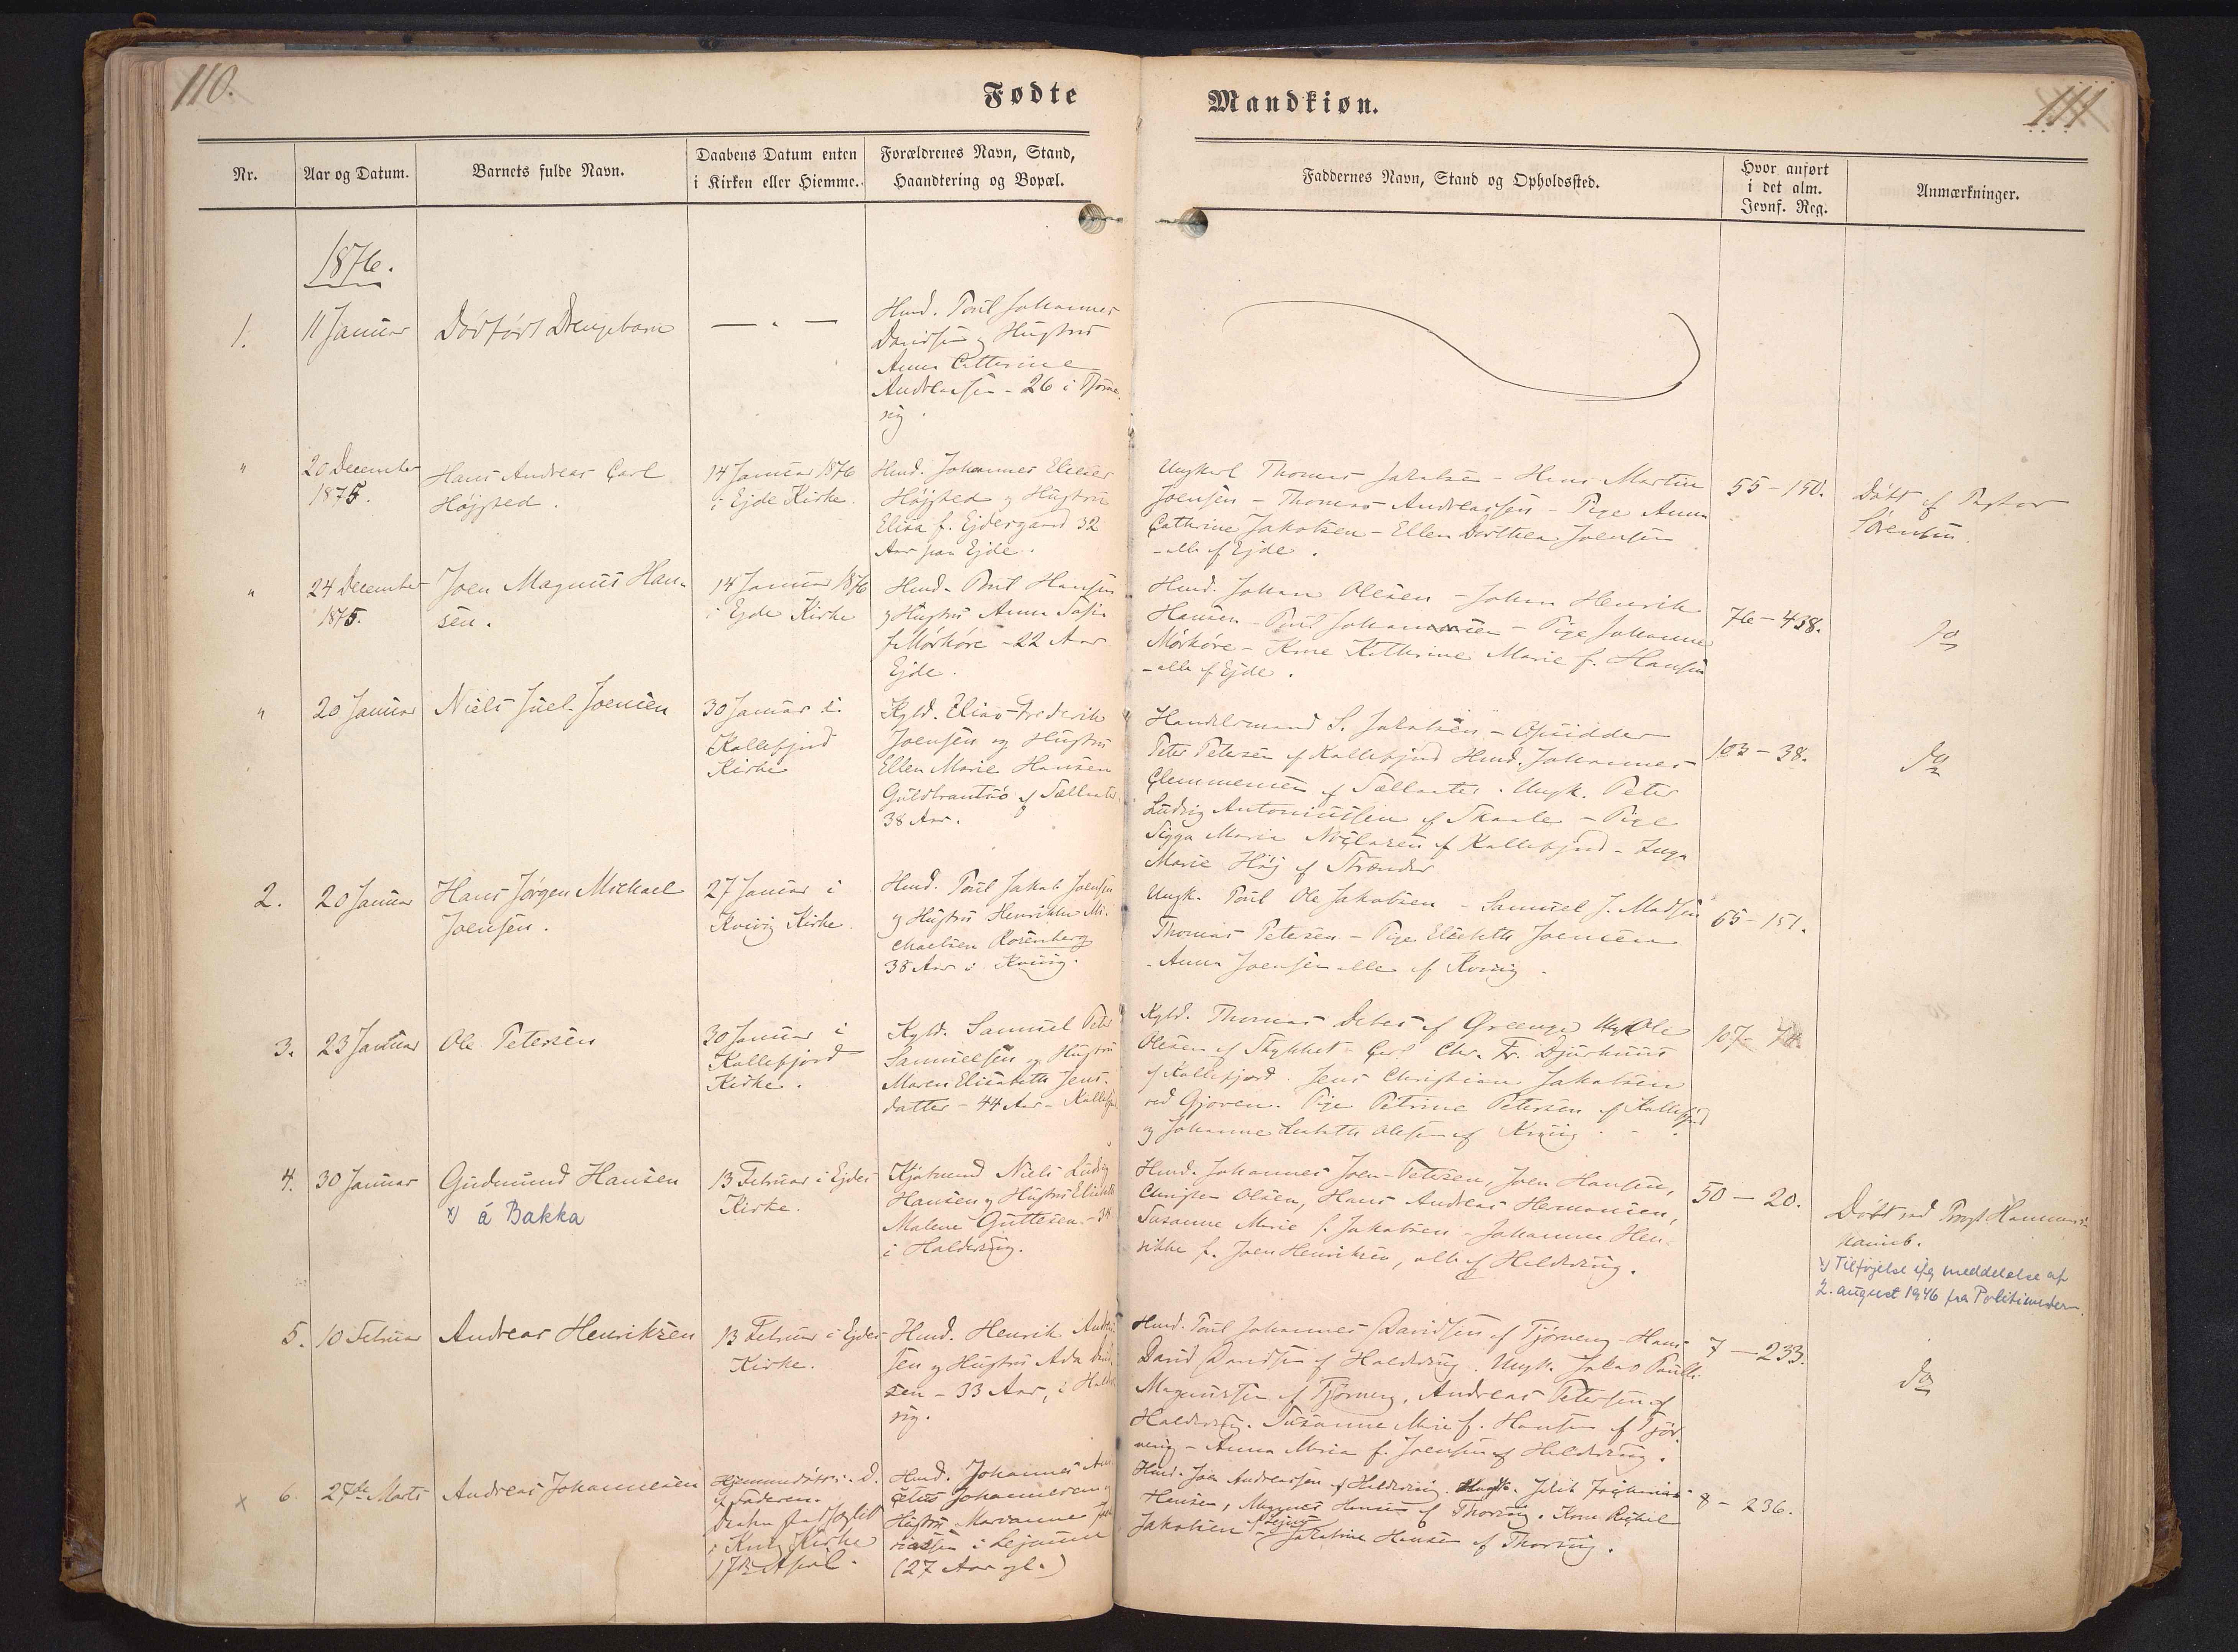 110.
Fødte
Mandkiøn.
111
Nr.
Aar og Datum.
Barnets fulde Navn.
Daabens Datum enten
i Kirken eller Hiemme.
Forældrenes Navn, Stand,
Haandtering og Bopæl.
Faddernes Navn, Stand og Opholdssted.
Hvor anført
i det alm.
Jevnf. Reg.
Anmærkninger.
1876.
1.
11 Januar
Dødfødt Drengebarn
— " —
Hmd. Poul Johannes
Davidsen og Hustru
Anna Catterine
Andreassen - 26 i Tjørne
vig.
"
20 December
1875.
Hans Andreas Carl
Højsted.
14 Januar 1876
i Ejde Kirke.
Hmd. Johannes Elieser
Højsted og Hustru
Elisa f. Ejdesgaard 32
Aar paa Ejde.
Ungkarl Thomas Jakobsen - Hans Martin
Joensen - Thomas Andreassen - Pige Anna
Cathrine Jakobsen - Ellen Dorthea Joensen
- alle af Ejde.
55 - 150.
Døbt af Pastor
Sørensen.
"
24 December
1875.
Joen Magnus Han-
sen.
14 Januar 1876
i Ejde Kirke
Hmd. Poul Hansen
og Hustru Anna Sofie
f. Mørkøre - 22 Aar
Ejde.
Hmd. Johan Olesen - Johan Henrik
Hansen - Poul Johannesen - Pige Johanne
Mørkøre - Kone Katherine Marie f. Hansen
- alle af Ejde.
76 - 438.
do
"
20 Januar
Niels Juel Joensen
30 Januar i
Kollefjord
Kirke
Kgld. Elias Frederik
Joensen og Hustru
Ellen Marie Hansen
Guldbrantsø af
38 Aar.
Handelsmand S. Jakobsen -
Peter Petersen af Kollefjord Hmd. Johannes
Clemmensen af . Ungk. Peter
Ludvig Antoniussen af Skaale - Pige
Sigga Maria af Kollefjord - Inga
Marie Høj af Strænder
103 - 38.
do
2.
20 Januar
Hans Jørgen Michael
Joensen.
27 Januar i
Kvivig Kirke.
Hmd. Poul Jakob Joensen
og Hustru Henrikke Mi-
chaelsen Rosenberg
38 Aar i Kvivig.
Ungk. Poul Ole Jakobsen - Samuel J. Madsen
Thomas Petersen - Pige Elsebeth Joensen
- Anna Joensen alle af Kvivig.
65 - 151.
3.
23 Januar
Ole Petersen
30 Januar i
Kollefjord
Kirke.
Kgld. Samuel Peter
Samuelsen og Hustru
Maren Elisabeth Jens-
datter - 44 Aar - Kollefjord
Kgld. Thomas Debes af Ungk Ole
Olesen af Stykket Carl Chr. Fr. Djurhuus
af Kollefjord. Jens Christian Jakobsen
ved Gjoven. Pige Petrine Petersen af Kollefjord
og Johanne Olesen af Kvivig.
107 -
4.
30 Januar
Gudmund Hansen
x) á Bakka
13 Februar i Ejdes
Kirke.
Niels Ludvig
Hansen og Hustru Elisabeth
Malene Guttesen - 38
i Haldersvig.
Hmd. Johannes Joen-Petersen, Joen Hansen,
Christen Olsen, Hans Andreas Hermansen,
Susanne Marie f. Jakobsen - Johanne Hen-
rikke f. Joen Henriksen, alle af Haldersvig.
50 - 20.
Døbt ved Provst Hammers-
haimb.
x) Tilføjelse ifg meddelelse af
2. august 1946 fra Politimesteren.
5.
10 Februar
Andreas Henriksen
13 Februar i Ejdes
Kirke.
Hmd. Henrik
sen og Hustru Ada
sen - 33 Aar, i Halders
vig.
Hmd. Poul Johannes Davidsen af Tjørnevig - Hans
David Davidsen af Haldersvig. Ungk. Jakob Paulli
Magnussen af Tjørnevig, Andreas Petersen af
Haldersvig. Susanne Marie f. Hansen af Tjør-
nevig - Anna Maria f. Joensen af Haldersvig.
7 - 233.
do
x
6.
27de Marts
Andreas Johannesen
Hjemmedøbt s. D.
af Faderen.
Daaben stadfæstet
i Kirke
17de April.
Hmd. Johannes
Johannesen og
Hustru Marianne
i Lejnum
(27 Aar gl.)
Hmd. Joen Andreassen af Haldersvig. Ungk.
Hansen, Magnus Hansen af Thorsvig. Kone Rachel
Jakobsen af Lejnum
Hansen af Thorsvig.
8 - 236.